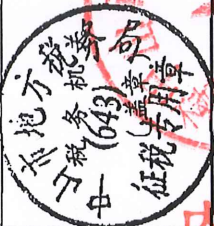 中山市地方税务局
税务机关
(盖章)
(643)
征税专用章